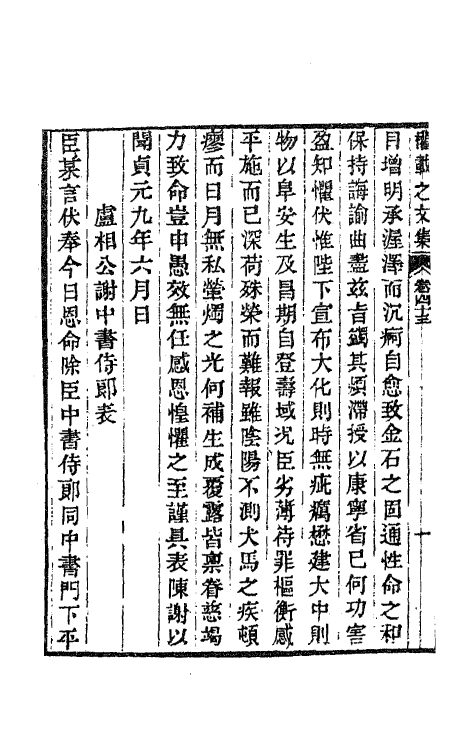 權載之文集 卷四十五 十
目增明承渥澤而沉痾自愈致金石之固通性命之和
保持誨諭曲盡兹吉蠲其煩滯授以康寧省已何功害
盈知懼伏惟陛下宣布大化則時無疵癘懋建大中則
物以阜安生及昌期自登壽域况臣劣薄待罪樞衡感
平施而已深荷殊榮而難報雖陰陽不測犬馬之疾頓
瘳而日月無私螢爝之光何補生成覆露皆禀眷慈竭
力致命豈申愚效無任感恩惶懼之至謹具表陳謝以
聞貞元九年六月日
盧相公謝中書侍郎表
臣某言伏奉今日恩命除臣中書侍郎同中書門下平